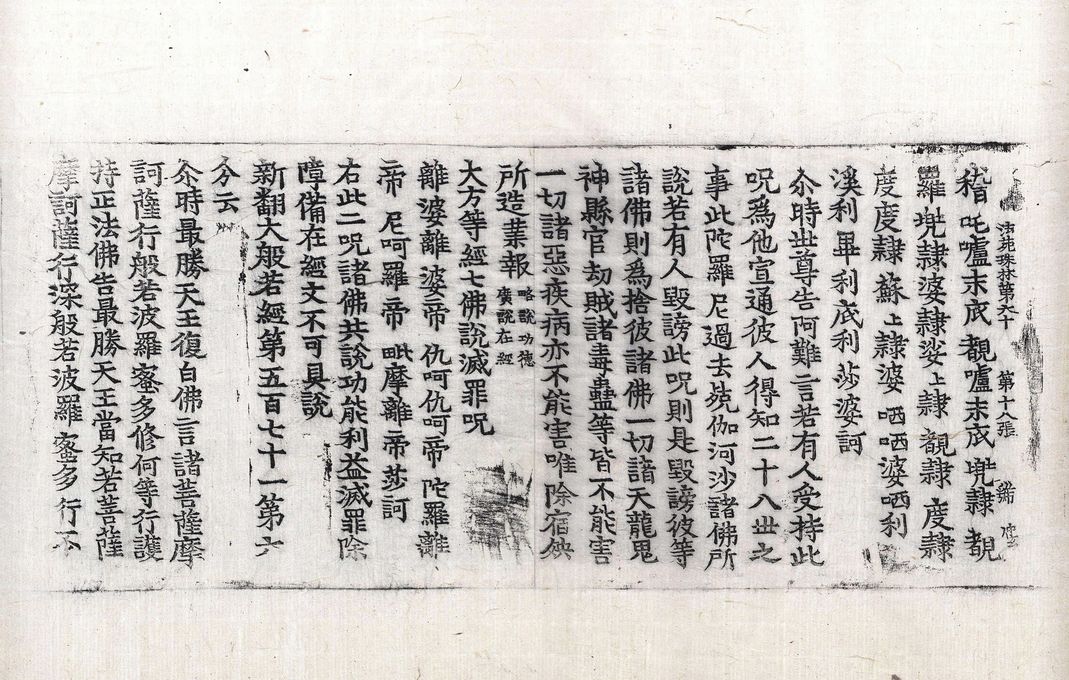 法苑珠林第六十 第十八張
稽 吒嚧末底 覩嚧末底 兠隷 覩
羅兠隷婆隷娑上隷 覩隷 度隷
度度隷 蘇上隷婆 哂哂婆哂利
溪利畢利底利莎婆訶
尒時世尊告阿難言若有人受持此
呪爲他宣通彼人得知二十八世之
事此陀羅尼過去兢伽河沙諸佛所
說若有人毀謗此呪則是毀謗彼等
諸佛則為捨彼諸佛一切諸天龍鬼
神縣官劫賊諸毒蠱等皆不能害
一切諸惡疾病亦不能害唯除宿殃
所造業報 略說功德廣說在經
大方等經七佛說滅罪呪
離婆離婆帝 仇呵仇呵帝 陀羅離
帝 尼呵羅帝 毗摩離帝莎訶
右此二呪諸佛共說功能利益滅罪除
障備在經文不可具說
新翻大般若經第五百七十一第六
分云
尒時最勝天王復白佛言諸菩薩摩
訶薩行般若波羅蜜多修何等行護
持正法佛告最勝天王當知若菩薩
摩訶薩行深般若波羅蜜多行不